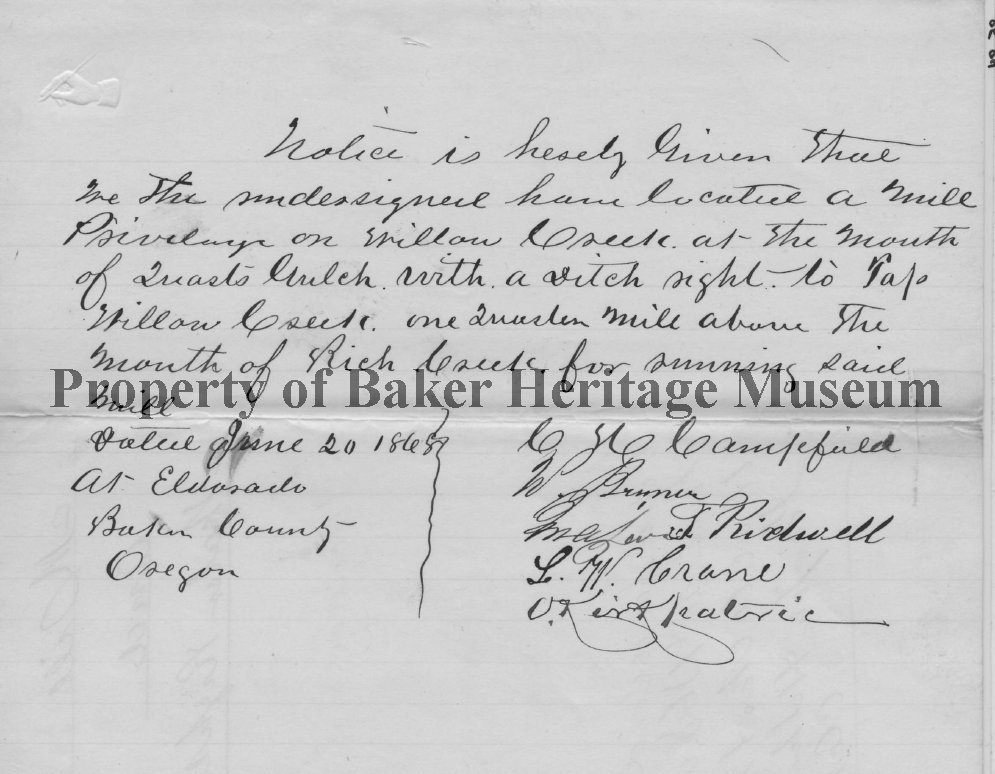 Notice is hereby Given that
we the undersigned have located a Mill
Privelage on Willow Creek. at the Mouth
of Quarts Gulch. with. a ditch right. to Tap
Willow Creek. one Quarter Mill above the
Mouth of Rich Creek. for running said
Property of Baker Heritage Museum
Mill
Dated June 20 1868
At Eldorado
Baker County
Oregon
C H C Campfield
W. Bruner
Ridwell
L. W. Crane
O. Kirkpatric